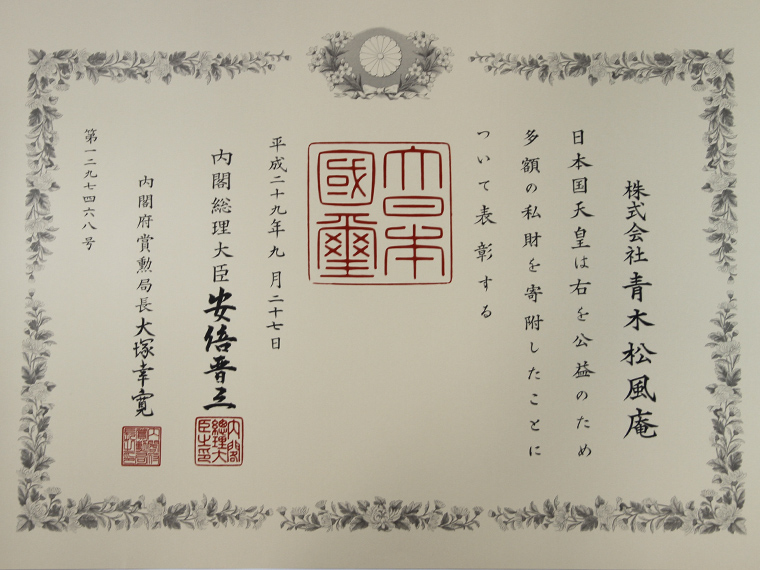 株式会社青木松風庵
日本国天皇は右を公益のため
多額の私財を寄附したことに
ついて表彰する
大日本
國璽
平成二十九年九月二十七日
内閣総理大臣安倍晋三
内閣総理大臣之印
内閣府賞勲局長大塚幸寛
内閣府賞勲局長之印
第一二九七四六八号